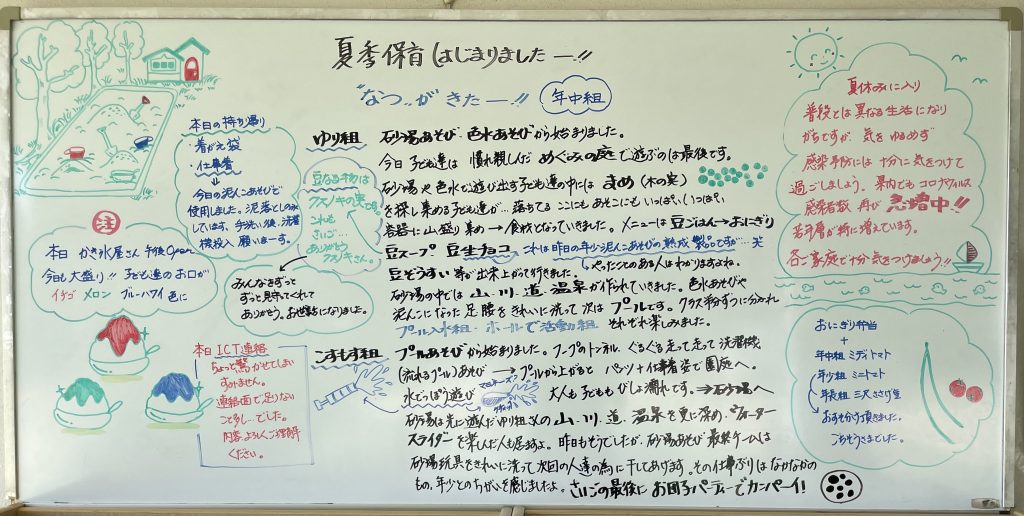 夏季保育はじまりました―!!
"なつ"がきた―!! 年中組
本日の持ち帰り
・着がえ袋
・仕事着
→今日の泥んこあそびで
使用しました。泥落としのみ
しています。手洗い後、洗濯
機投入 願いまーす。
注
本日 かき氷屋さん 午後Open
今日も大盛り!! 子ども達のお口が
イチゴ メロン ブルーハワイ 色に
本日 ICT連絡
ちょっと驚かせてしまい
すみません。
連絡面で足りない
ことも…でした。
内容、よろしくご理解
ください。
豆なる物は
クスノキの実です。
これも
さいご…
ありがとう
クスノキさん。
みんなをずっと
ずっと見守ってくれて
ありがとう。お世話になりました。
ゆり組 砂場あそび、色水あそびから始まりました。
今日 子ども達は 慣れ親しんだ めぐみの庭で遊ぶのは最後です。
砂場や色水で遊び出す子ども達の中には まめ(木の実)
を探し集める子ども達が… 落ちてる ここにも あそこにも いっぱい、いっぱい、
容器に山盛り集め→食材となっていきました。 メニューは豆ごはん→おにぎり
豆スープ 豆生チョコ これは昨日の年少泥んこあそびの熟成製品ですが…笑
やったことのある人はわかりますよね。
豆ぞうすい 等が出来上がって行きました。
砂場の中では 山、川、道、温泉が作られていきました。色水あそびや
泥んこになった足腰をきれいに洗って次は プールです。クラス半分ずつに分かれ
プール入水組・ホールで活動組 それぞれ楽しみました。
こすもす組 プールあそびから始まりました。フープのトンネル、ぐるぐる走って走って洗濯機
(流れるプール)あそび → プールから上がると パンツ+仕事着姿で園庭へ。
水でっぽう遊び 大人も子どもも びしょ濡れです。→砂場へ
砂場は先に遊んだゆり組の山、川、道、温泉を更に深め、ウォーター
スライダーを楽しんだ人も居ますよ。昨日もそうでしたが、砂場あそび最終ゲームは
砂場玩具をきれいに洗って次回の人達の為に干してあります。その仕事ぶりはなかなかの
もの、年少とのちがいを感じましたよ。さいごの最後に お団子パーティーでカンパーイ!
夏休みに入り
普段とは異なる生活になり
がちですが、気をゆるめず
感染予防には十分に気をつけて
過ごしましょう。県内でもコロナウイルス
感染者数 再び 急増中!!
若年層が特に増えています。
各ご家庭で十分気をつけましょう!!
おにぎり弁当
+
年中組 ミディトマト
年少組 ミニトマト
年長組 三尺ささげ豆
おすそ分け頂きました。
ごちそうさまでした。